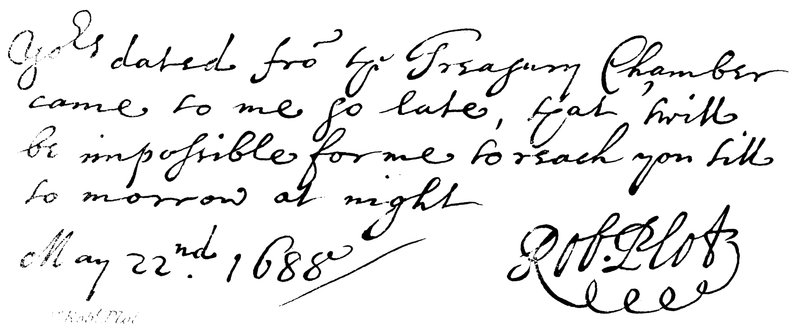 Yors dated frō ye Treasury Chamber
came to me so late, yat twill
be impossible for me to reach you till
to morrow at night
May 22nd. 1688
Rob. Plot
Robt. Plot